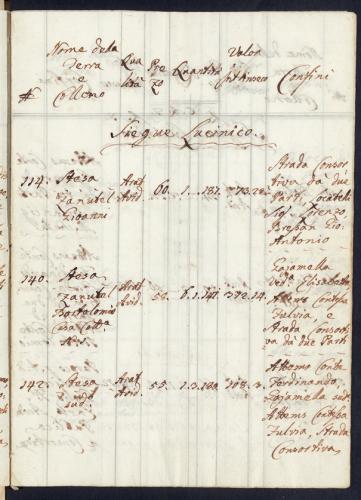 # Nome della Terra e Colleno Qua lità Pre zo Quantità Valor Confini
Siegue Lucinico.
114. Aesa Zanutel Gioanni Arat Avid 60. 1.. 187. 173.28.
Strada Consor
tiva da due
Parti, Locatelli
Sig. Lorenzo,
Bressan Gio.
Antonio
140. Aesa Zanutel Bartolomio Casa Cotta N. Arat Avid. 141 372.14.
Zajamella
Ved. Elisabetta
Attems Contessa
Fulvia, e
Strada Consorti
va da due Parti
142. Aesa sud. Arat Avid. 55. 1.3.180 108.3.
Attems Conte
Ferdinando,
Zajamella sud.
Attems Contessa
Fulvia, Strada
Consortiva,